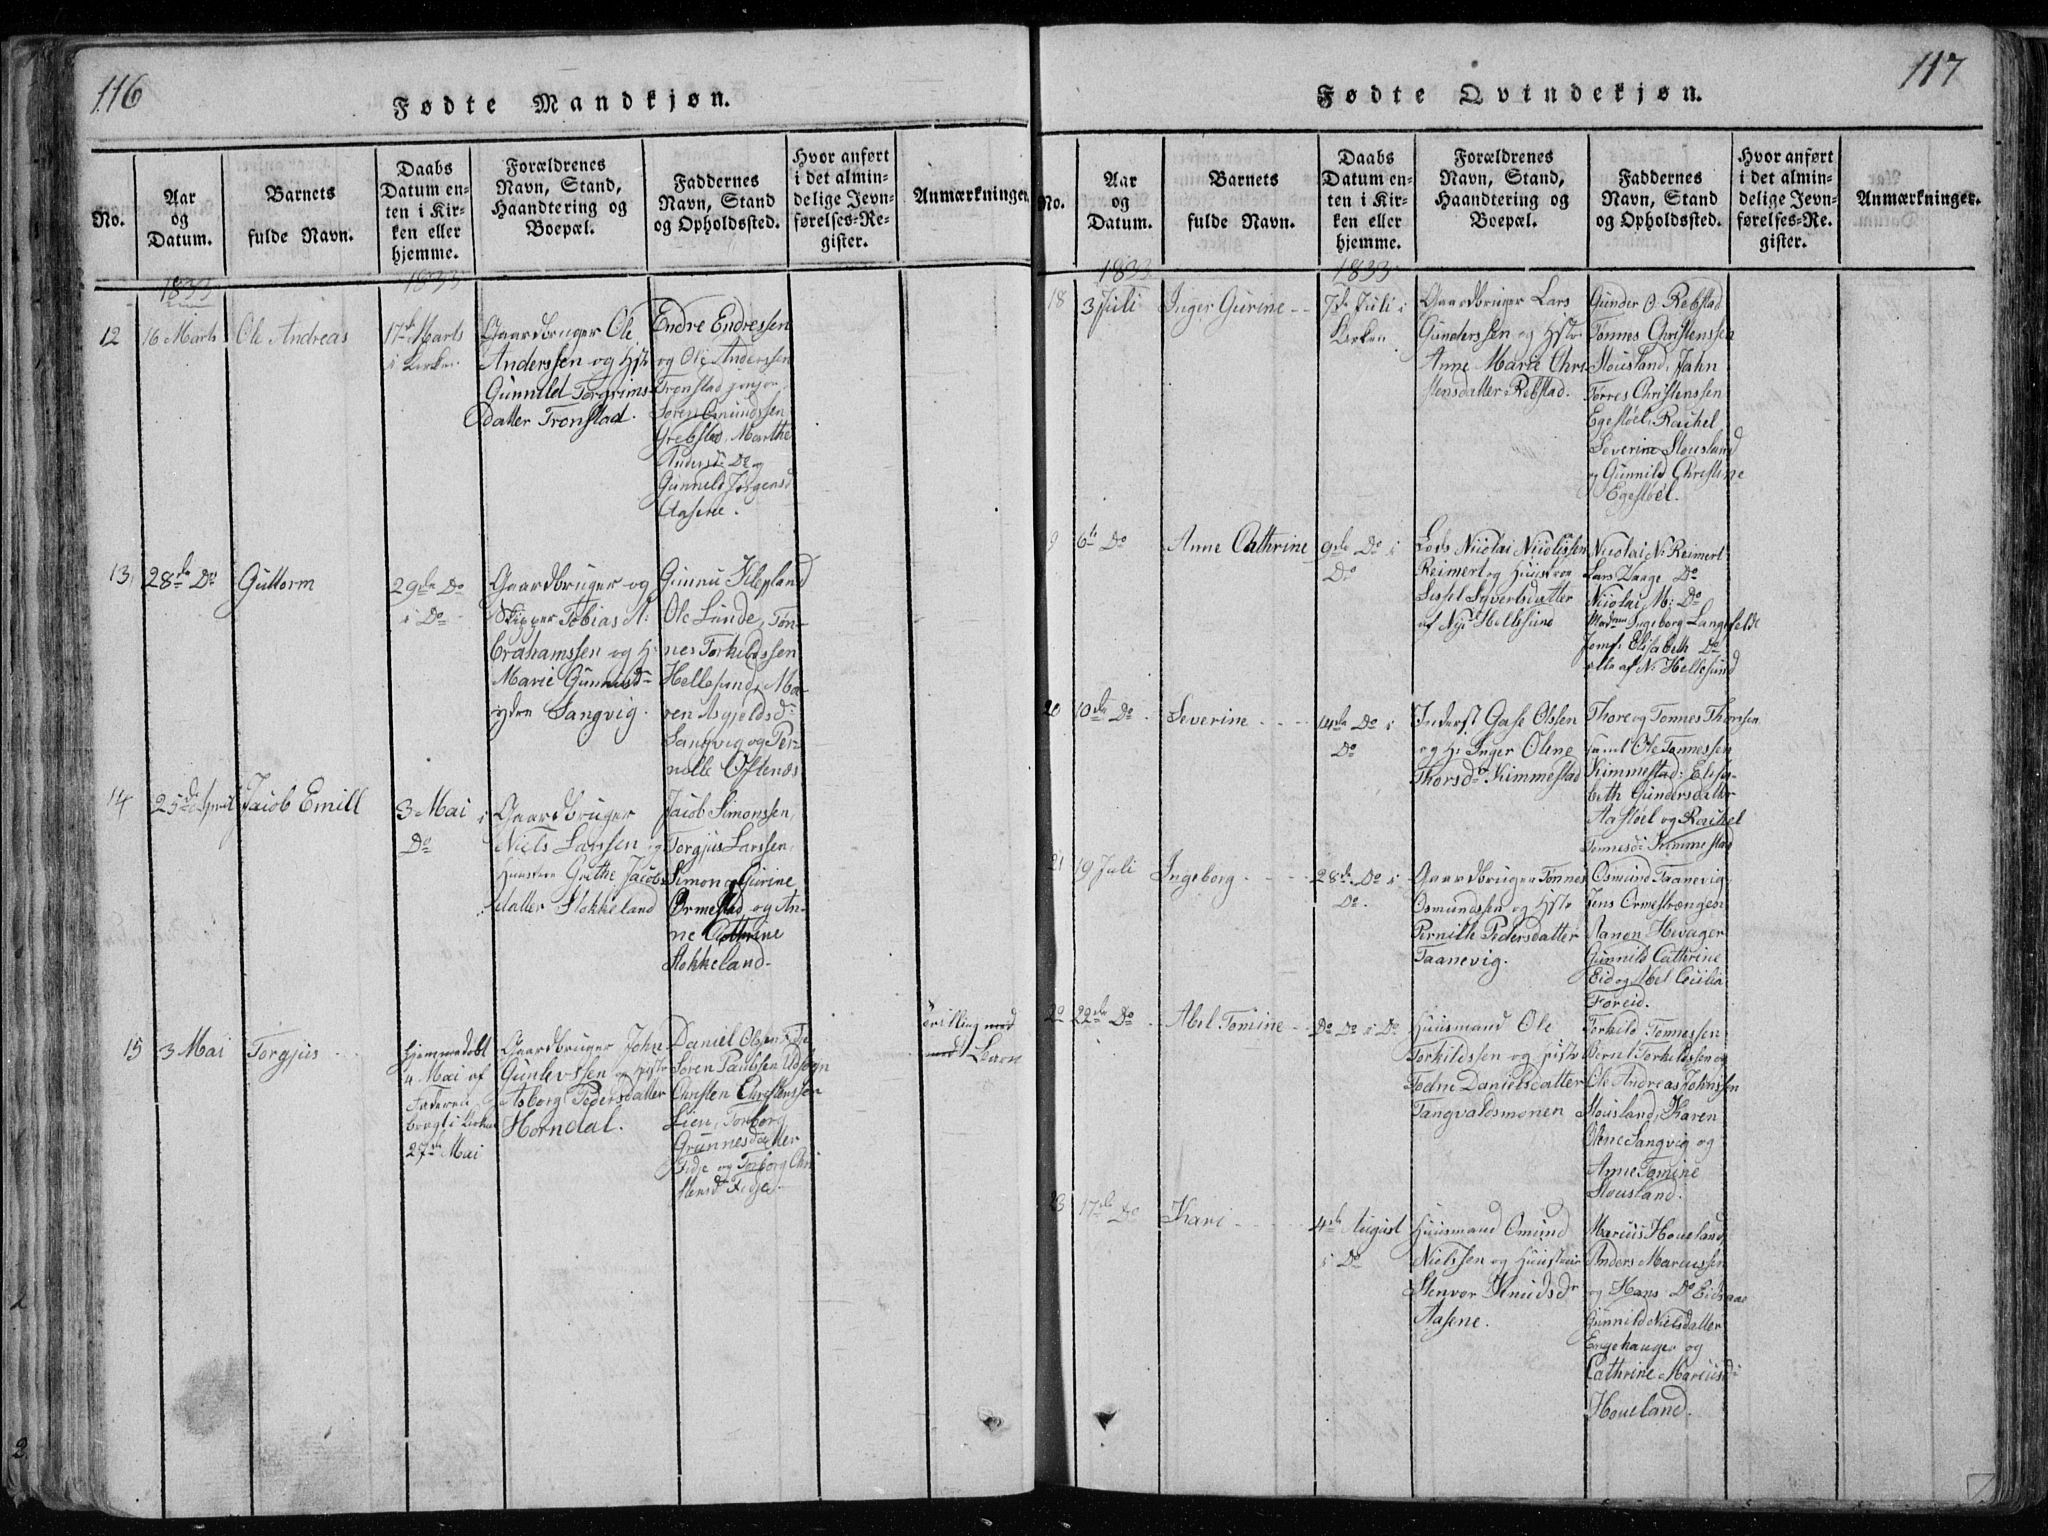 116
Fødte Mandkjøn.
No.
Aar
og
Datum.
Barnets
fulde Navn.
Daabs
Datum en-
ten i Kir-
ken eller
hjemme.
Forældrenes
Navn, Stand,
Haandtering og
Boepæl.
Faddernes
Navn, Stand
og Opholdssted.
Hvor anført
i det almin-
delige Jevn-
førelses-Re-
gister.
Anmærkninger.
1833
1833
12
16 Marts
Ole Andreas
17de Marts
i Kirken
Gaardbruger Ole
Anderssen og Hstr
Gunnild Torgrims-
datter Tronstad.
Endre Endressen
og Ole Anderssen
Tronstad
Søren Omundssen
Grebsted, Marthe
Andersd. Do og
Gunnild Jørgensd
Aasene.
13
28de Do
Guttorm
29de Do
i Do
Gaardbruger og
Skipper Tobias A:
brahamssen og H:
Marie Gunnusd-
ydre Langvig.
Gunnu
Ole Lunde, Tøn-
nes Torkildssen
Hellesund, Ma-
ren Asgjeldsd:
Langvig og Per-
nille Oftenæs
14
25de April
Jacob Emill
3 Mai i
Do
Gaardbruger
Niels Larssen og
Huustroe Grethe Jacobs
datter Stokkeland
Jacob Simonssen,
Torgjus Larssen,
Simon og Gurine
Ormestad og An-
ne Cathrine
Stokkeland.
15
3 Mai
Torgjus
Hjemmedøbt
4 Mai af
Faderen
bragt i Kirken
27de Mai
Gaardbruger John
Gunlevssen og Hstr
Asborg Pedersdatter
Horndal.
Daniel Olssen
Søren Paulssen Udsogn
Christen Christenssen
Lien, Torborg
Grunnesdatter
Fidje og Torborg Chri
stensd. Fidje.
Tvilling med
med Søren
117
Fødte Qvindekjøn.
No.
Aar
og
Datum.
Barnets
fulde Navn.
Daabs
Datum en-
ten i Kir-
ken eller
hjemme.
Forældrenes
Navn, Stand,
Haandtering og
Boepæl.
Faddernes
Navn, Stand
og Opholdssted.
Hvor anført
i det almin-
delige Jevn-
førelses-Re-
gister.
Anmærkninger.
1833
1833
18
3 Juli
Inger Gurine
7de Juli i
Kirken
Gaardbruger Lars
Gunderssen og Hstr
Anne Marie Chri
stensdatter Rebstad.
Gunder O: Rebstad
Tønnes Christenssen
Stousland, Jahn
Tørres Christenssen
Egestøel, Rachel
Severine Stousland
og Gunnild Christine
Egestøel.
9
6te Do
Anne Cathrine
9de Do i
Do
Lods Nicolai Nicolissen
Reimert og Huustroe
Sissel Syvertsdatter
af Nye Hellesund
Nicolai N: Reimert
Lars Vaage Do
Nicolai M: Do
Madme Ingeborg Langefeldt
Jomf: Elisabeth Do
alle af N: Hellesund
20
10de Do
Severine
14de Do i
Do
Inderst Gase Olssen
og H: Inger Oline
Thorsdr Kimmestad
Thore og Tønnes Thorssen
samt Ole Tønnessen
Kimmestad: Elisa-
beth Gundersdatter
Aastøel og Rachel
Tønnesd: Kimmestad
21
19 Juli
Ingeborg
28de Do i
Do.
Gaardbruger Tønnes
Osmundssen og Hstr
Pernille Pedersdatter
Taanevig.
Osmund Taanevig
Jens Ormestrængen
Aanon Hevager
Gunnild Cathrine
Eid og Abel Cecilia
Foreid.
22
22de Do
Abel Tomine
Do Do i Do
Huusmand Ole
Torkildssen og Hustr
Todne Danielsdatter
Tangvaldsmonen
Torkild Tønnessen
Bernt Torkildssen og
Ole Andreas Johnssen
Stousland, Karen
Oline Langvig og
Anne Tomine
Stousland.
23
17de Do
Kari
4de August
i Do
Huusmand Omund
Nielssen og Huustroe
Stenvor Knudsdr
Aasene.
Marcus Houeland,
Anders Marcussen
og Hans Do Eidsaae
Gunnild Nielsdatter
Engehauger og
Cathrine Marcusd:
Houeland.